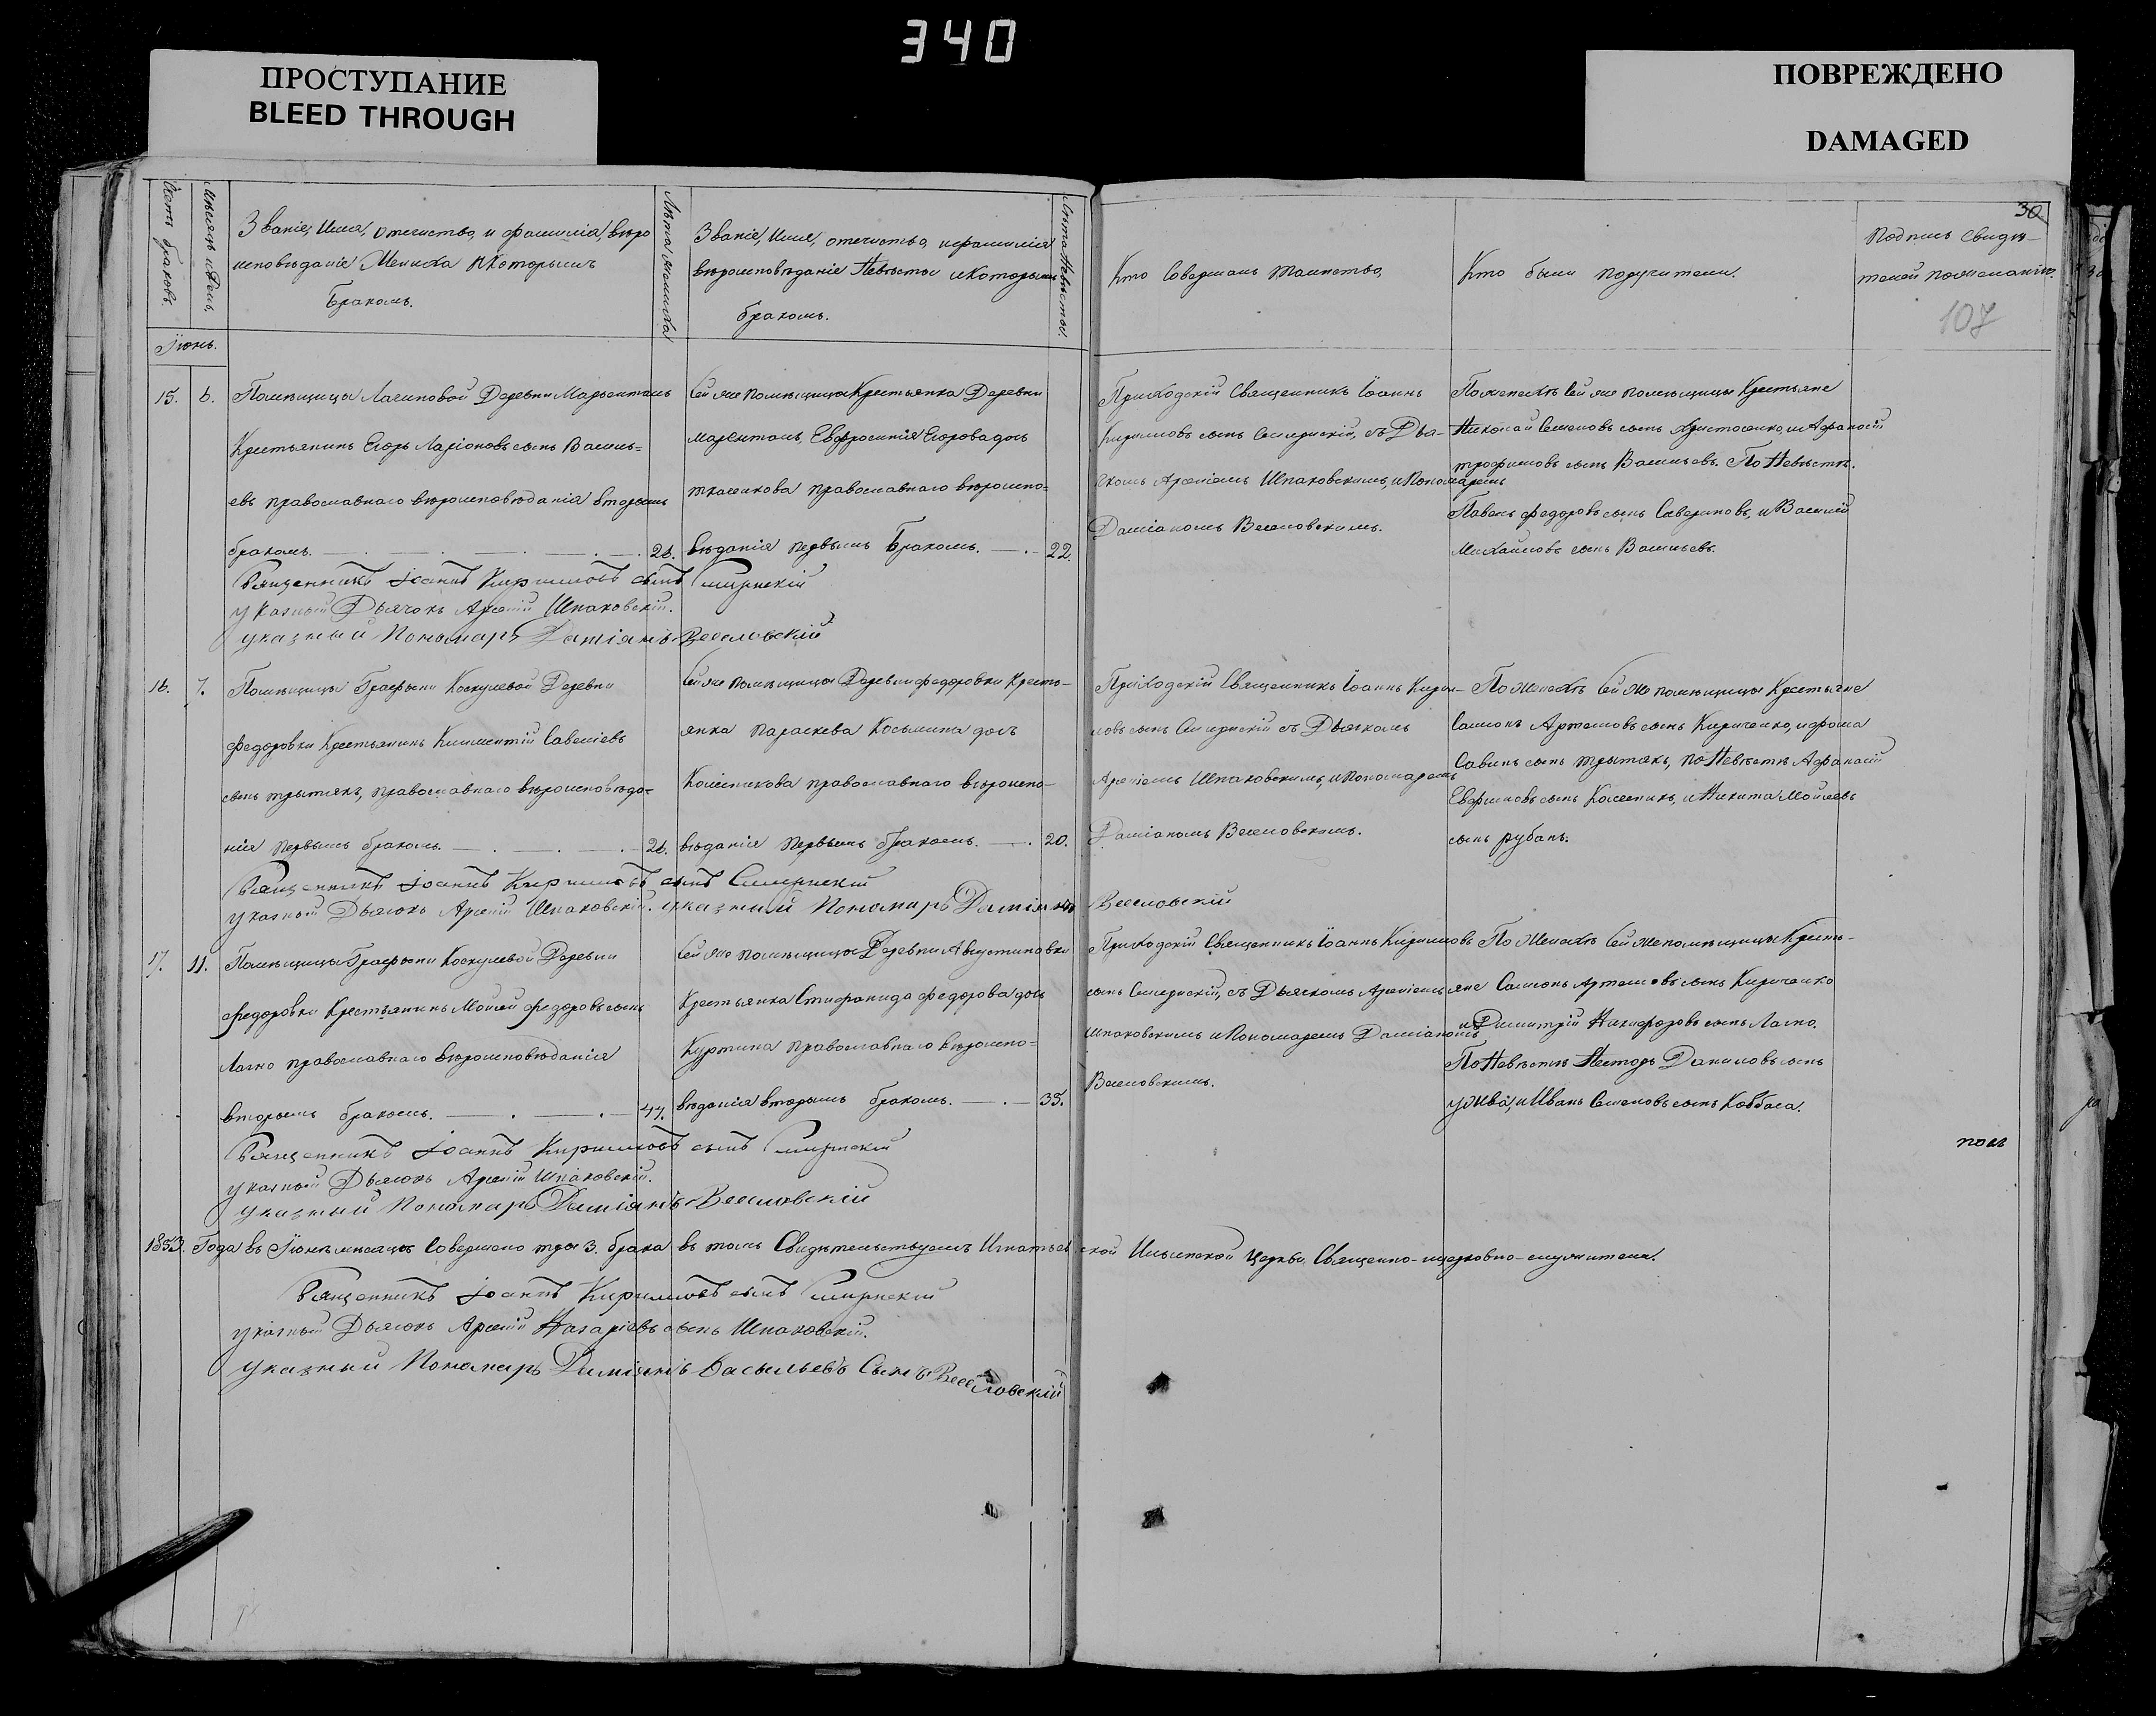 340
ПРОСТУПАНИЕ
BLEED THROUGH
ПОВРЕЖДЕНО
DAMAGED
30
107
Счетъ браковъ.
Мѣсяцъ и День.
Званіе, Имя, отечество, и фамилія, вѣро
исповѣданіе Жениха и Которымъ
Бракомъ.
Лѣта Жениха
Званіе, Имя, отечество, и фамилія
вѣроисповѣданіе Невѣсты и Которымъ
бракомъ.
Лѣта Невѣсты.
Кто Совершалъ Таинство.
Кто были поручители.
Подпись Свидѣ-
телей по желанію.
Іюнь.
15. 6. Помѣщицы Логиновой Деревни
Крестьянинъ Егоръ Ларіоновъ сынъ Василь=
евъ православнаго вѣроисповѣданія вторымъ
бракомъ. 26.
Сей же помѣщицы Крестьянка Деревни
Евфросинія Егорова дочь
православнаго вѣроиспо=
вѣданія первымъ Бракомъ. 22.
Приходскій Священникъ Іоаннъ
Кирилловъ сынъ съ Дья-
комъ Арсеніемъ Шпаковскимъ, и Пономаремъ
Даміаномъ Веселовскимъ.
По женихѣ Сей же помѣщицы Крестьяне
Николай Семеновъ сынъ Христосенко, и Афанасій
трофимовъ сынъ Васильевъ. По Невѣстѣ.
Павелъ федоровъ сынъ и Василій
Михайловъ сынъ Васильевъ.
Священникъ Іоаннъ Кирилловъ сынъ
указный Дьячокъ Арсеній Шпаковскій.
указный Пономарь Даміянъ Веселовскій
16. 7. Помѣщицы Графини Коскулевой Деревни
федоровки Крестьянинъ Климентій Савеліевъ
сынъ трытякъ, православнаго вѣроисповѣда=
нія первымъ бракомъ. 26.
Сей же помѣщицы Деревни федоровки Кресть-
янка Параскева Косьмина дочь
православнаго вѣроиспо-
вѣданія первымъ бракомъ. 20.
Приходскій Священникъ Іоаннъ Кирил-
ловъ сынъ съ Дьячкомъ
Арсеніемъ Шпаковскимъ, и Пономаремъ
Даміаномъ Веселовскимъ.
По женихѣ Сей же помѣщицы Крестьяне
Самсонъ Артемовъ сынъ Кириченко, и фома
Савинъ сынъ трытякъ, по Невѣстѣ Афанасій
Евфимовъ сынъ Колесникъ, и Никита Мойсеевъ
сынъ рубанъ.
Священникъ Іоаннъ Кирилловъ сынъ
указный Дьячокъ Арсеній Шпаковскій. указный Пономарь Даміянъ Веселовскій
17. 11. Помѣщицы Графини Коскулевой Деревни
федоровки Крестьянинъ Мойсей федоровъ сынъ
православнаго вѣроисповѣданія
вторымъ бракомъ. 47.
Сей же помѣщицы Деревни Августиновки
Крестьянка Стифанида федорова дочь
Куртина православнаго вѣроиспо=
вѣданія вторымъ бракомъ. 35.
Приходскій Священникъ Іоаннъ Кирилловъ
сынъ съ Дьячкомъ Арсеніемъ
Шпаковскимъ и Пономаремъ Даміаномъ
Веселовскимъ.
По Женихѣ Сей же помѣщицы Кресть-
яне Самсонъ Артемовъ сынъ Кириченко
и Димитрій Никифоровъ сынъ
По Невѣстѣ Несторъ Даниловъ сынъ
и Иванъ Семеновъ сынъ Ковбаса.
Священникъ Іоаннъ Кирилловъ сынъ
указный Дьячокъ Арсеній Шпаковскій.
указный Пономарь Даміянъ Веселовскій
1853. Года въ Іюнѣ мѣсяцѣ Совершено три 3. брака въ томъ Свидѣтельствуемъ Игнатьевской Ильинской Церкви Священно-церковно-служители.
Священникъ Іоаннъ Кирилловъ сынъ
указный Дьячокъ Арсеній Назаріевъ сынъ Шпаковскій.
указный Пономарь Даміянъ Васыльевъ Сынъ Веселовскій